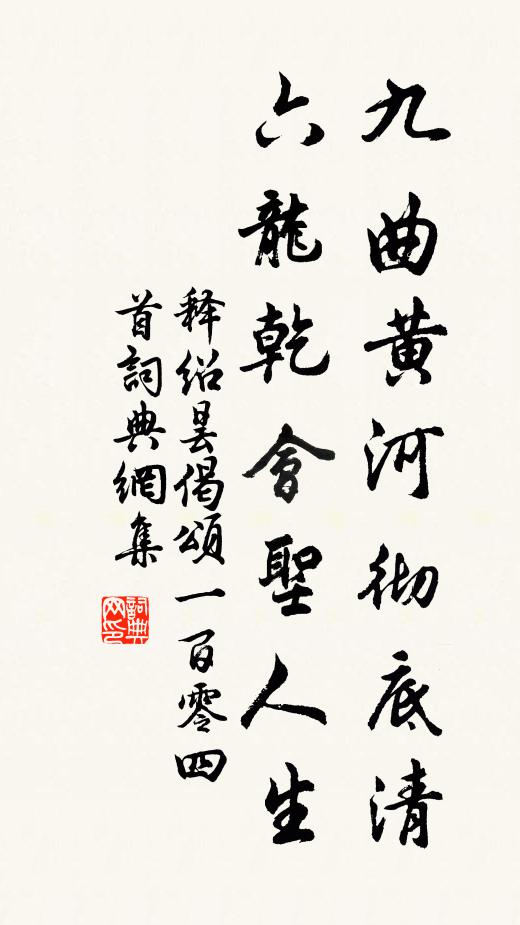 九曲黄河彻底清
六龍乾會聖人生
释绍昙偈頌一百零四
首詞典網集
詞典网印